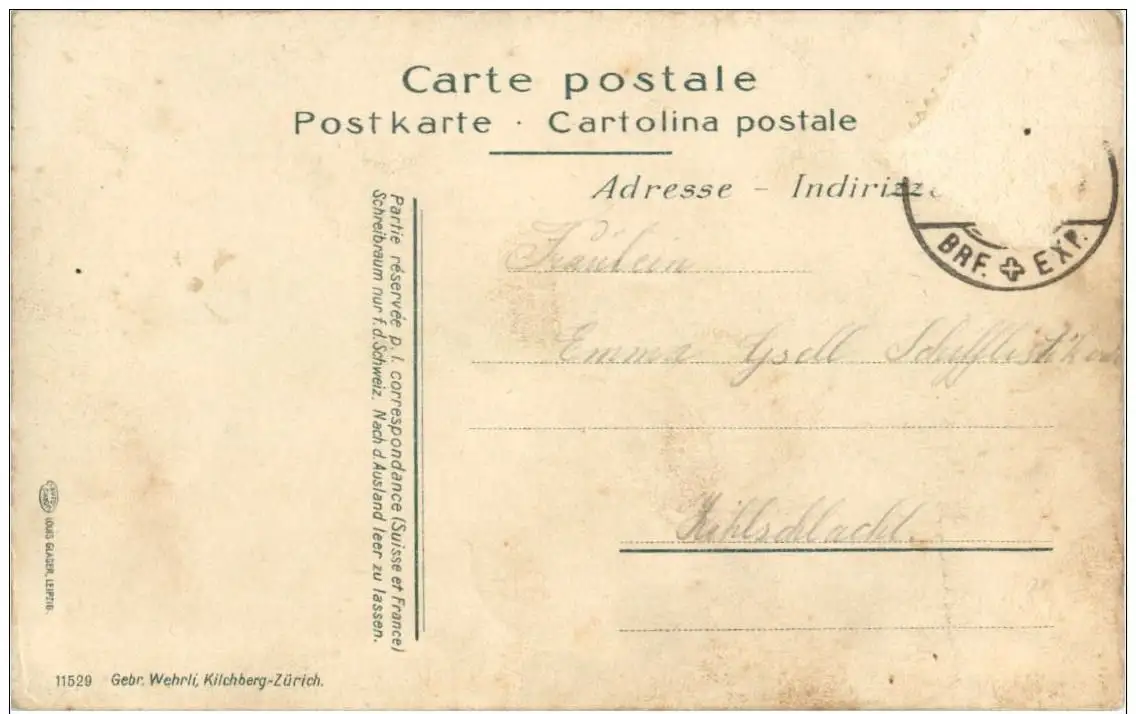 Carte postale
Postkarte · Cartolina postale
Adresse - Indirizzo
BRF. EXP.
Fräulein
Emma Gsell
Zihlschlacht.
Partie réservée p. l. correspondance (Suisse et France)
Schreibraum nur f. d. Schweiz. Nach d. Ausland leer zu lassen.
LOUIS GLASER, LEIPZIG.
11529 Gebr. Wehrli, Kilchberg-Zürich.